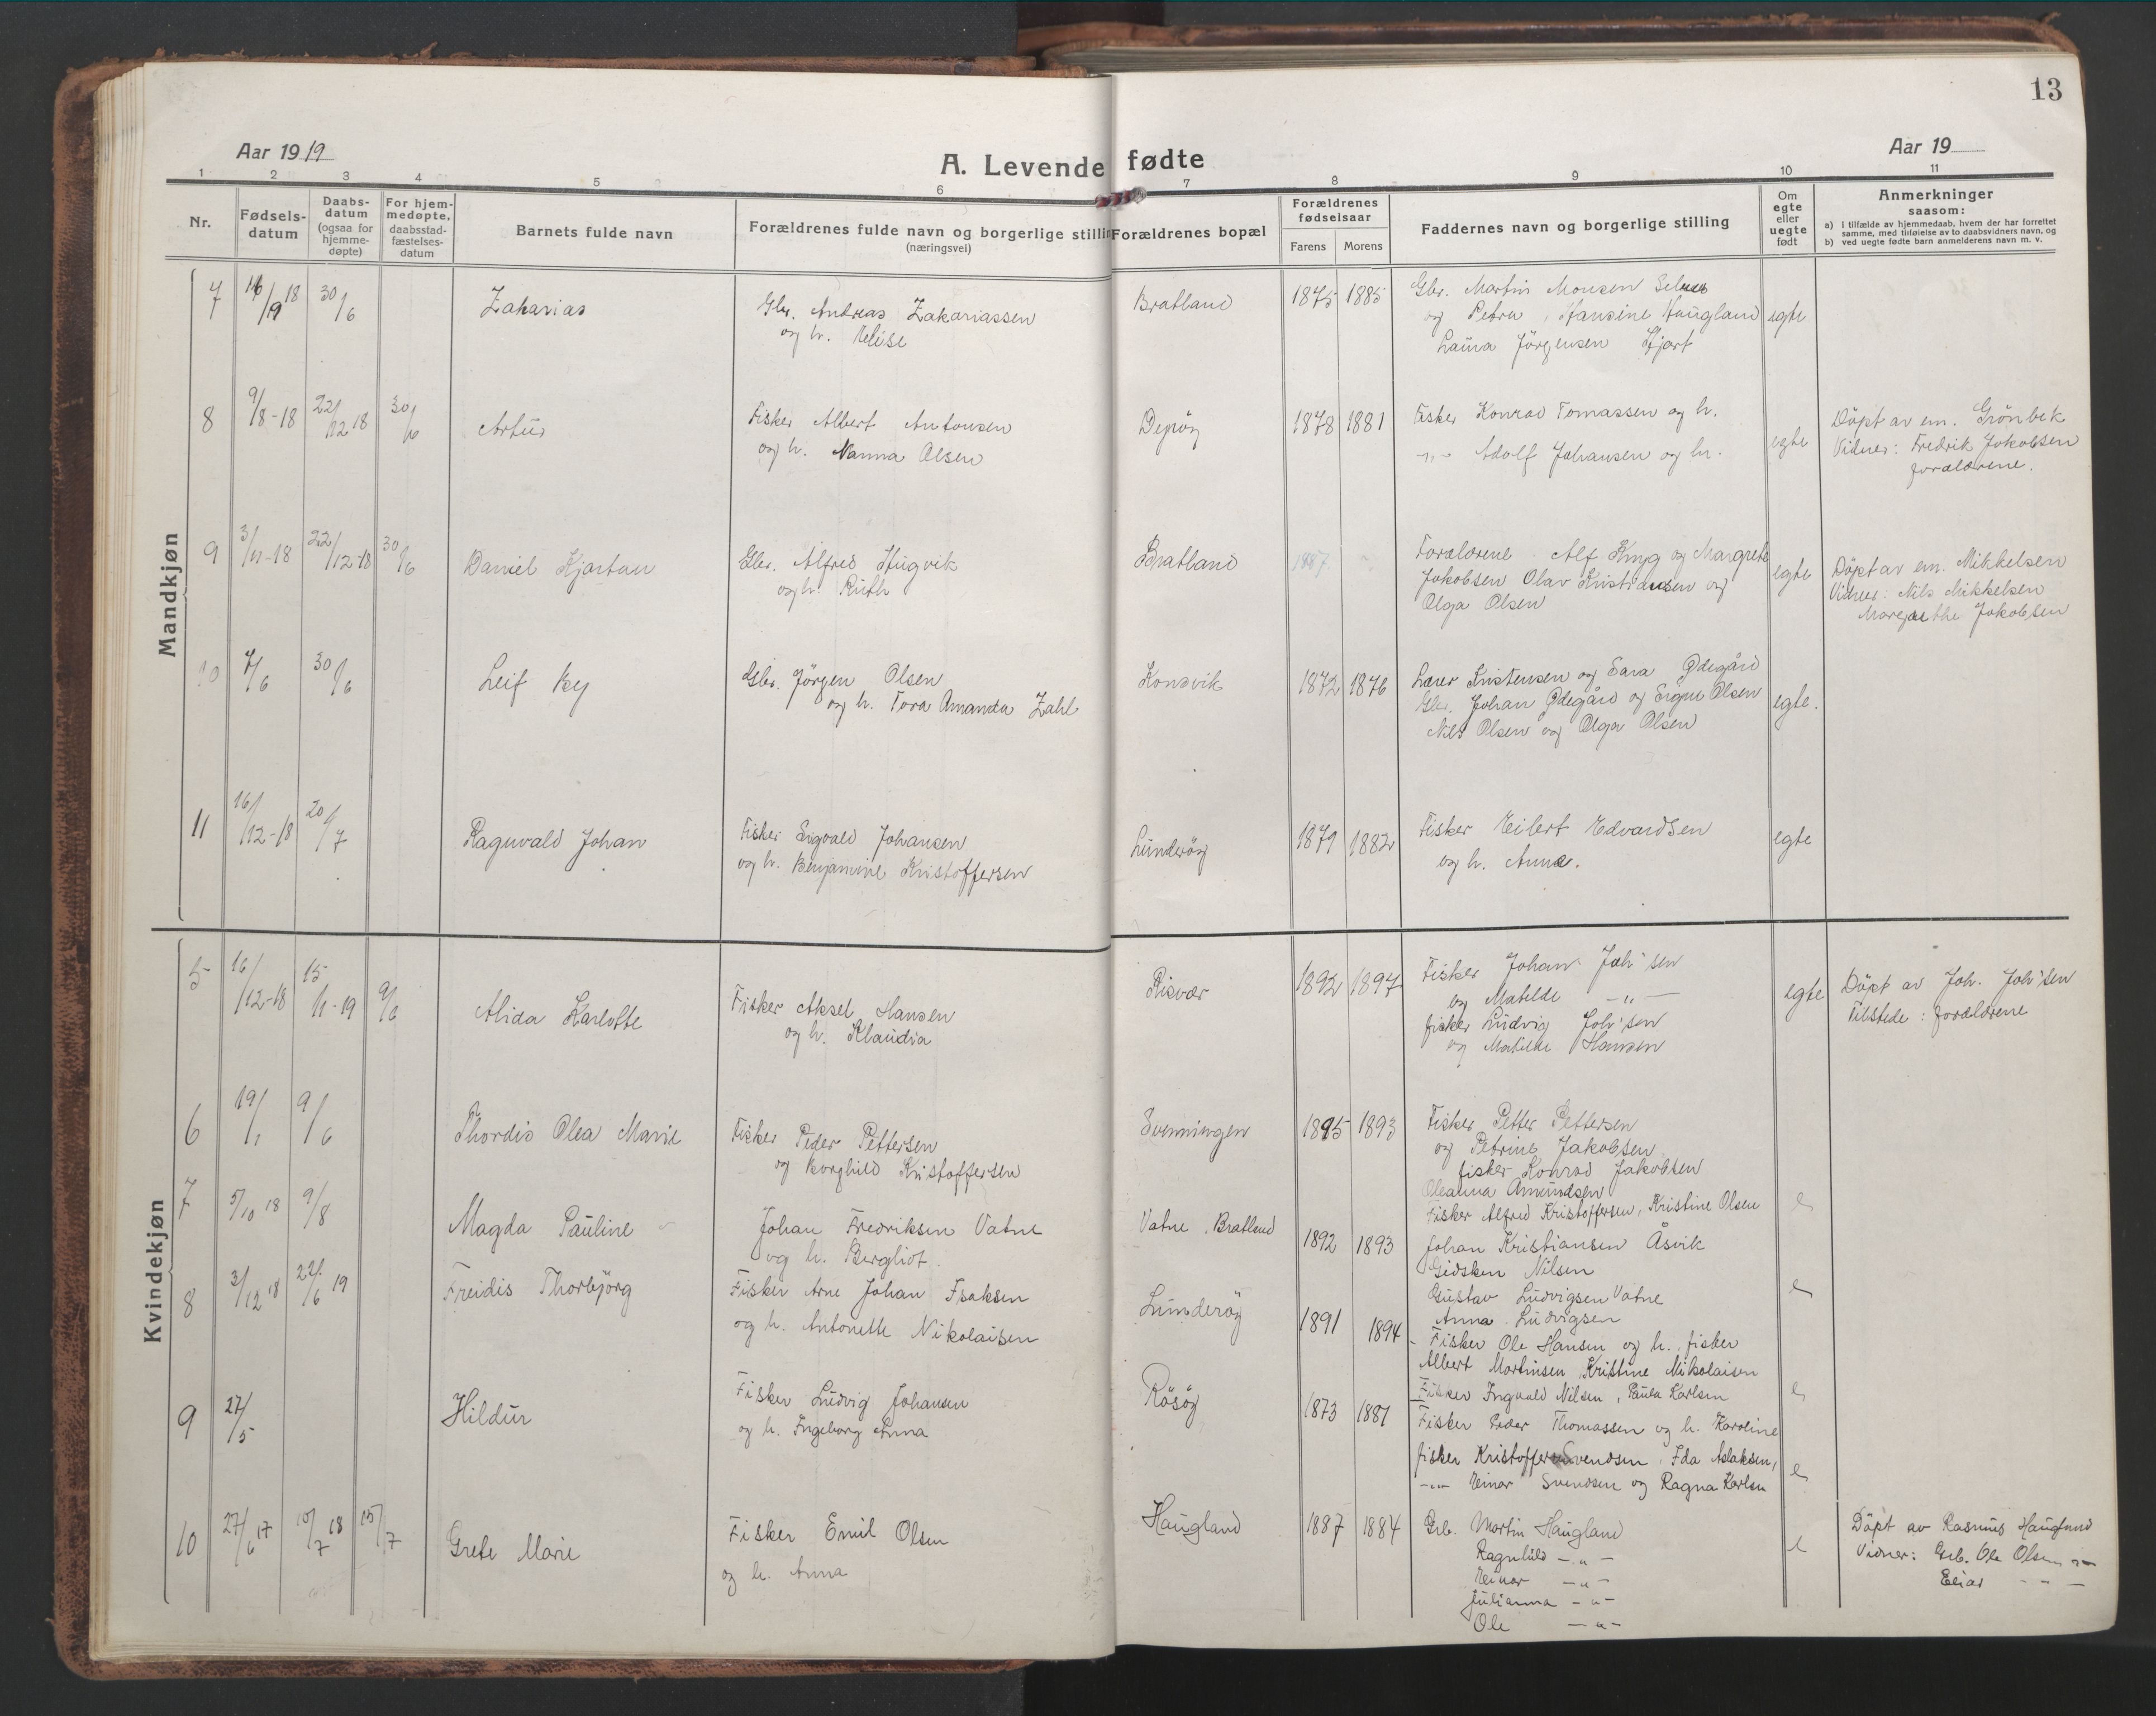 13
Aar 1919
A. Levende fødte
Aar 19
1 2 3 4 5 6 7 8 9 10 11
Nr.
Fødsels-
datum
Daabs-
datum
(ogsaa for
hjemme-
døpte)
For hjem-
medøpte,
daabsstad-
fæstelses-
datum
Barnets fulde navn
Forældrenes fulde navn og borgerlige stilling
(næringsvei)
Forældrenes bopæl
Forældrenes
fødselsaar
Farens Morens
Faddernes navn og borgerlige stilling
Om
egte
eller
uegte
født
Anmerkninger
saasom:
a) i tilfælde av hjemmedaab, hvem der har forrettet
samme, med tilføielse av to daabsvidners navn, og
b) ved uegte fødte barn anmelderens navn m. v.
Mandkjøn
7 30/6 Zakarias
Gbr. Andreas Zakariassen
og h. Elise
Bratland 1875 1885
Gbr. Martin Monsen
og Petra, Hansine Haugland
Laura Jörgensen Hjart
egte
8 9/8-18 22/12 18 30/6 Artur
Fisker Albert Antonsen
og h. Nanna Olsen
Depöy 1878 1881
Fisker Konrad Tomassen og h.
-"- Adolf Johansen og h.
egte
Döpt av em. Grönbek
Vidner: Fredrik Jakobsen
forældrene.
9 3/11-18 22/12-18 30/6 Daniel Kjartan
Gbr. Alfred Hugvik
og h. Ruth
Bratland 1887
Forældrene. Alf King og Margrete
Jakobsen Olav Kristiansen og
Olga Olsen
egte
Döpt av em. Mikkelsen
Vidner: Nils Mikkelsen
Margrethe Jakobsen
10 7/6 30/6 Leif
Gbr. Jörgen Olsen
og h. Tora Amanda Zahl
Konsvik 1872 1876
Lærer Kristensen og Sara Ødegård
Gbr. Johan Ødegård og Signe Olsen
Nils Olsen og Olga Olsen
egte.
11 16/12-18 20/7 Ragnvald Johan
Fisker Sigvald Johansen
og h. Benjamine Kristoffersen
Lunderöy 1879 1882
Fisker Eilert Edvardsen
og h. Anna.
egte
Kvindekjøn
5 16/12-18 15/1-19 9/6 Alida Karlotte
Fisker Aksel Hansen
og h. Klaudia
Risvær 1892 1897
Fisker Johan Joh'sen
og Matilde -"-
fisker Ludvig Joh'sen
og Matilde Hansen
egte
Döpt av Joh. Joh'sen
Tilstede: forældrene
6 19/1 9/6 Thordis Olea Marie
Fisker Peder Pettersen
og Borghild Kristoffersen
Svenningen 1895 1893
Fisker Petter Pettersen
og Petrine Jakobsen
fisker Konrad Jakobsen
Oleanna Amundsen
Fisker Alfred Kristoffersen, Kristine Olsen
e
7 5/10 18 9/8 Magda Pauline
Johan Fredriksen Vatne
og h. Bergliot.
Vatne, Bratland 1892 1893
Johan Kristiansen Åsvik
Gidsken Nilsen
Gustav Ludvigsen Vatne
Anna Ludvigsen
e
8 3/12 18 22/6 19 Freidis Thorbjörg
Fisker Arne Johan Isaksen
og h. Antonette Nikolaisen
Lunderöy 1891 1894
Fisker Ole Hansen og h. fisker
Albert Mortinsen, Kristine Nikolaisen
Fisker Ingvald Nilsen, Paula Karlsen
e
9 27/5 Hildur
Fisker Ludvig Johansen
og h. Ingeborg Anna
Rösöy 1873 1881
Fisker Peder Thomassen og h. Karoline
fisker Kristoffer Svendsen, Ida Aslaksen,
-"- Einar Svendsen og Ragna Karlsen
e
10 27/6 17 10/7 18 15/7 Grete Marie
Fisker Emil Olsen
og h. Anna
Haugland 1887 1884
Grb. Martin Haugland
Ragnhild -"-
Einar -"-
Julianna -"-
Ole -"-
e
Döpt av Rasmus Haugland
Vidner: Grb. Ole Olsen
Elias -"-